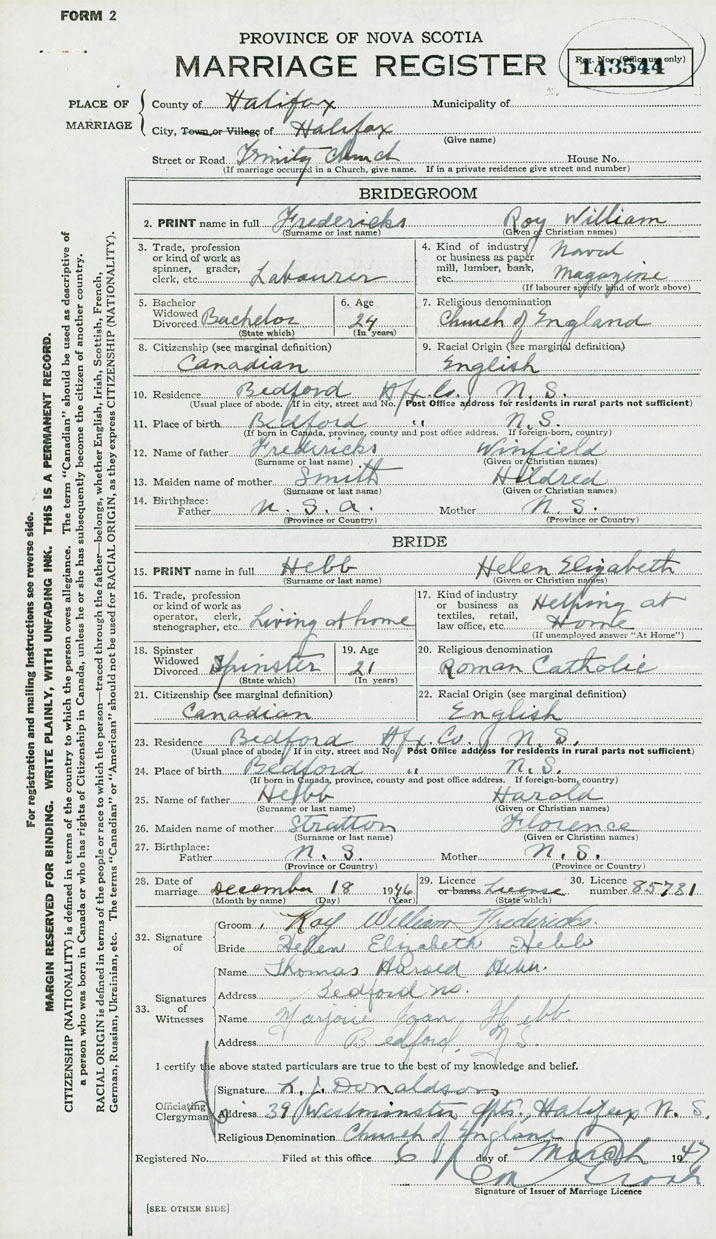 FORM 2
PROVINCE OF NOVA SCOTIA
MARRIAGE REGISTER
Reg. No. (Office use only)
143544
PLACE OF MARRIAGE
County of Halifax Municipality of
City, Town or Village of Halifax
(Give name)
Street or Road Trinity Church House No.
(If marriage occurred in a Church, give name. If in a private residence give street and number)
BRIDEGROOM
2. PRINT name in full Fredericks Roy William
(Surname or last name) (Given or Christian names)
3. Trade, profession or kind of work as spinner, grader, clerk, etc. Labourer
4. Kind of industry or business as paper mill, lumber, bank, etc. Naval Magazine
(If labourer specify kind of work above)
5. Bachelor Widowed Divorced Bachelor
(State which)
6. Age 24
(In years)
7. Religious denomination
Church of England
8. Citizenship (see marginal definition)
Canadian
9. Racial Origin (see marginal definition)
English
10. Residence Bedford Hfx. Co. N. S.
(Usual place of abode. If in city, street and No. Post Office address for residents in rural parts not sufficient)
11. Place of birth Bedford " N. S.
(If born in Canada, province, county and post office address. If foreign-born, country)
12. Name of father Fredericks Winfield
(Surname or last name) (Given or Christian names)
13. Maiden name of mother Smith Hildred
(Surname or last name) (Given or Christian names)
14. Birthplace:
Father N. S. a. Mother N. S.
(Province or Country) (Province or Country)
BRIDE
15. PRINT name in full Hebb Helen Elizabeth
(Surname or last name) (Given or Christian names)
16. Trade, profession or kind of work as operator, clerk, stenographer, etc. Living at home
17. Kind of industry or business as textiles, retail, law office, etc. Helping at Home
(If unemployed answer "At Home")
18. Spinster Widowed Divorced Spinster
(State which)
19. Age 21
(In years)
20. Religious denomination
Roman Catholic
21. Citizenship (see marginal definition)
Canadian
22. Racial Origin (see marginal definition)
English
23. Residence Bedford Hfx. Co. N. S.
(Usual place of abode. If in city, street and No. Post Office address for residents in rural parts not sufficient)
24. Place of birth Bedford " N. S.
(If born in Canada, province, county and post office address. If foreign-born, country)
25. Name of father Hebb Harold
(Surname or last name) (Given or Christian names)
26. Maiden name of mother Stratton Florence
(Surname or last name) (Given or Christian names)
27. Birthplace:
Father N. S. Mother N. S.
(Province or Country) (Province or Country)
28. Date of marriage December 18 1946
(Month by name) (Day) (Year)
29. Licence or banns License
(State which)
30. Licence number 85731
32. Signature of
Groom Roy William Fredericks.
Bride Helen Elizabeth Hebb
33. Signatures of Witnesses
Name Thomas Harold
Address Bedford NS.
Name Marjorie Joan Hebb.
Address Bedford, N.S.
I certify the above stated particulars are true to the best of my knowledge and belief.
Officiating Clergyman
Signature Donaldson
Address 39 Westminster Apts., Halifax N. S.
Religious Denomination Church of England
Registered No. Filed at this office 6 day of March 1947
Signature of Issuer of Marriage Licence
[SEE OTHER SIDE]
For registration and mailing instructions see reverse side.
MARGIN RESERVED FOR BINDING. WRITE PLAINLY, WITH UNFADING INK. THIS IS A PERMANENT RECORD.
CITIZENSHIP (NATIONALITY) is defined in terms of the country to which the person owes allegiance. The term "Canadian" should be used as descriptive of
a person who was born in Canada or who has rights of Citizenship in Canada, unless he or she has subsequently become the citizen of another country.
RACIAL ORIGIN is defined in terms of the people or race to which the person—traced through the father—belongs, whether English, Irish, Scottish, French,
German, Russian, Ukrainian, etc. The terms "Canadian" or "American" should not be used for RACIAL ORIGIN, as they express CITIZENSHIP (NATIONALITY).